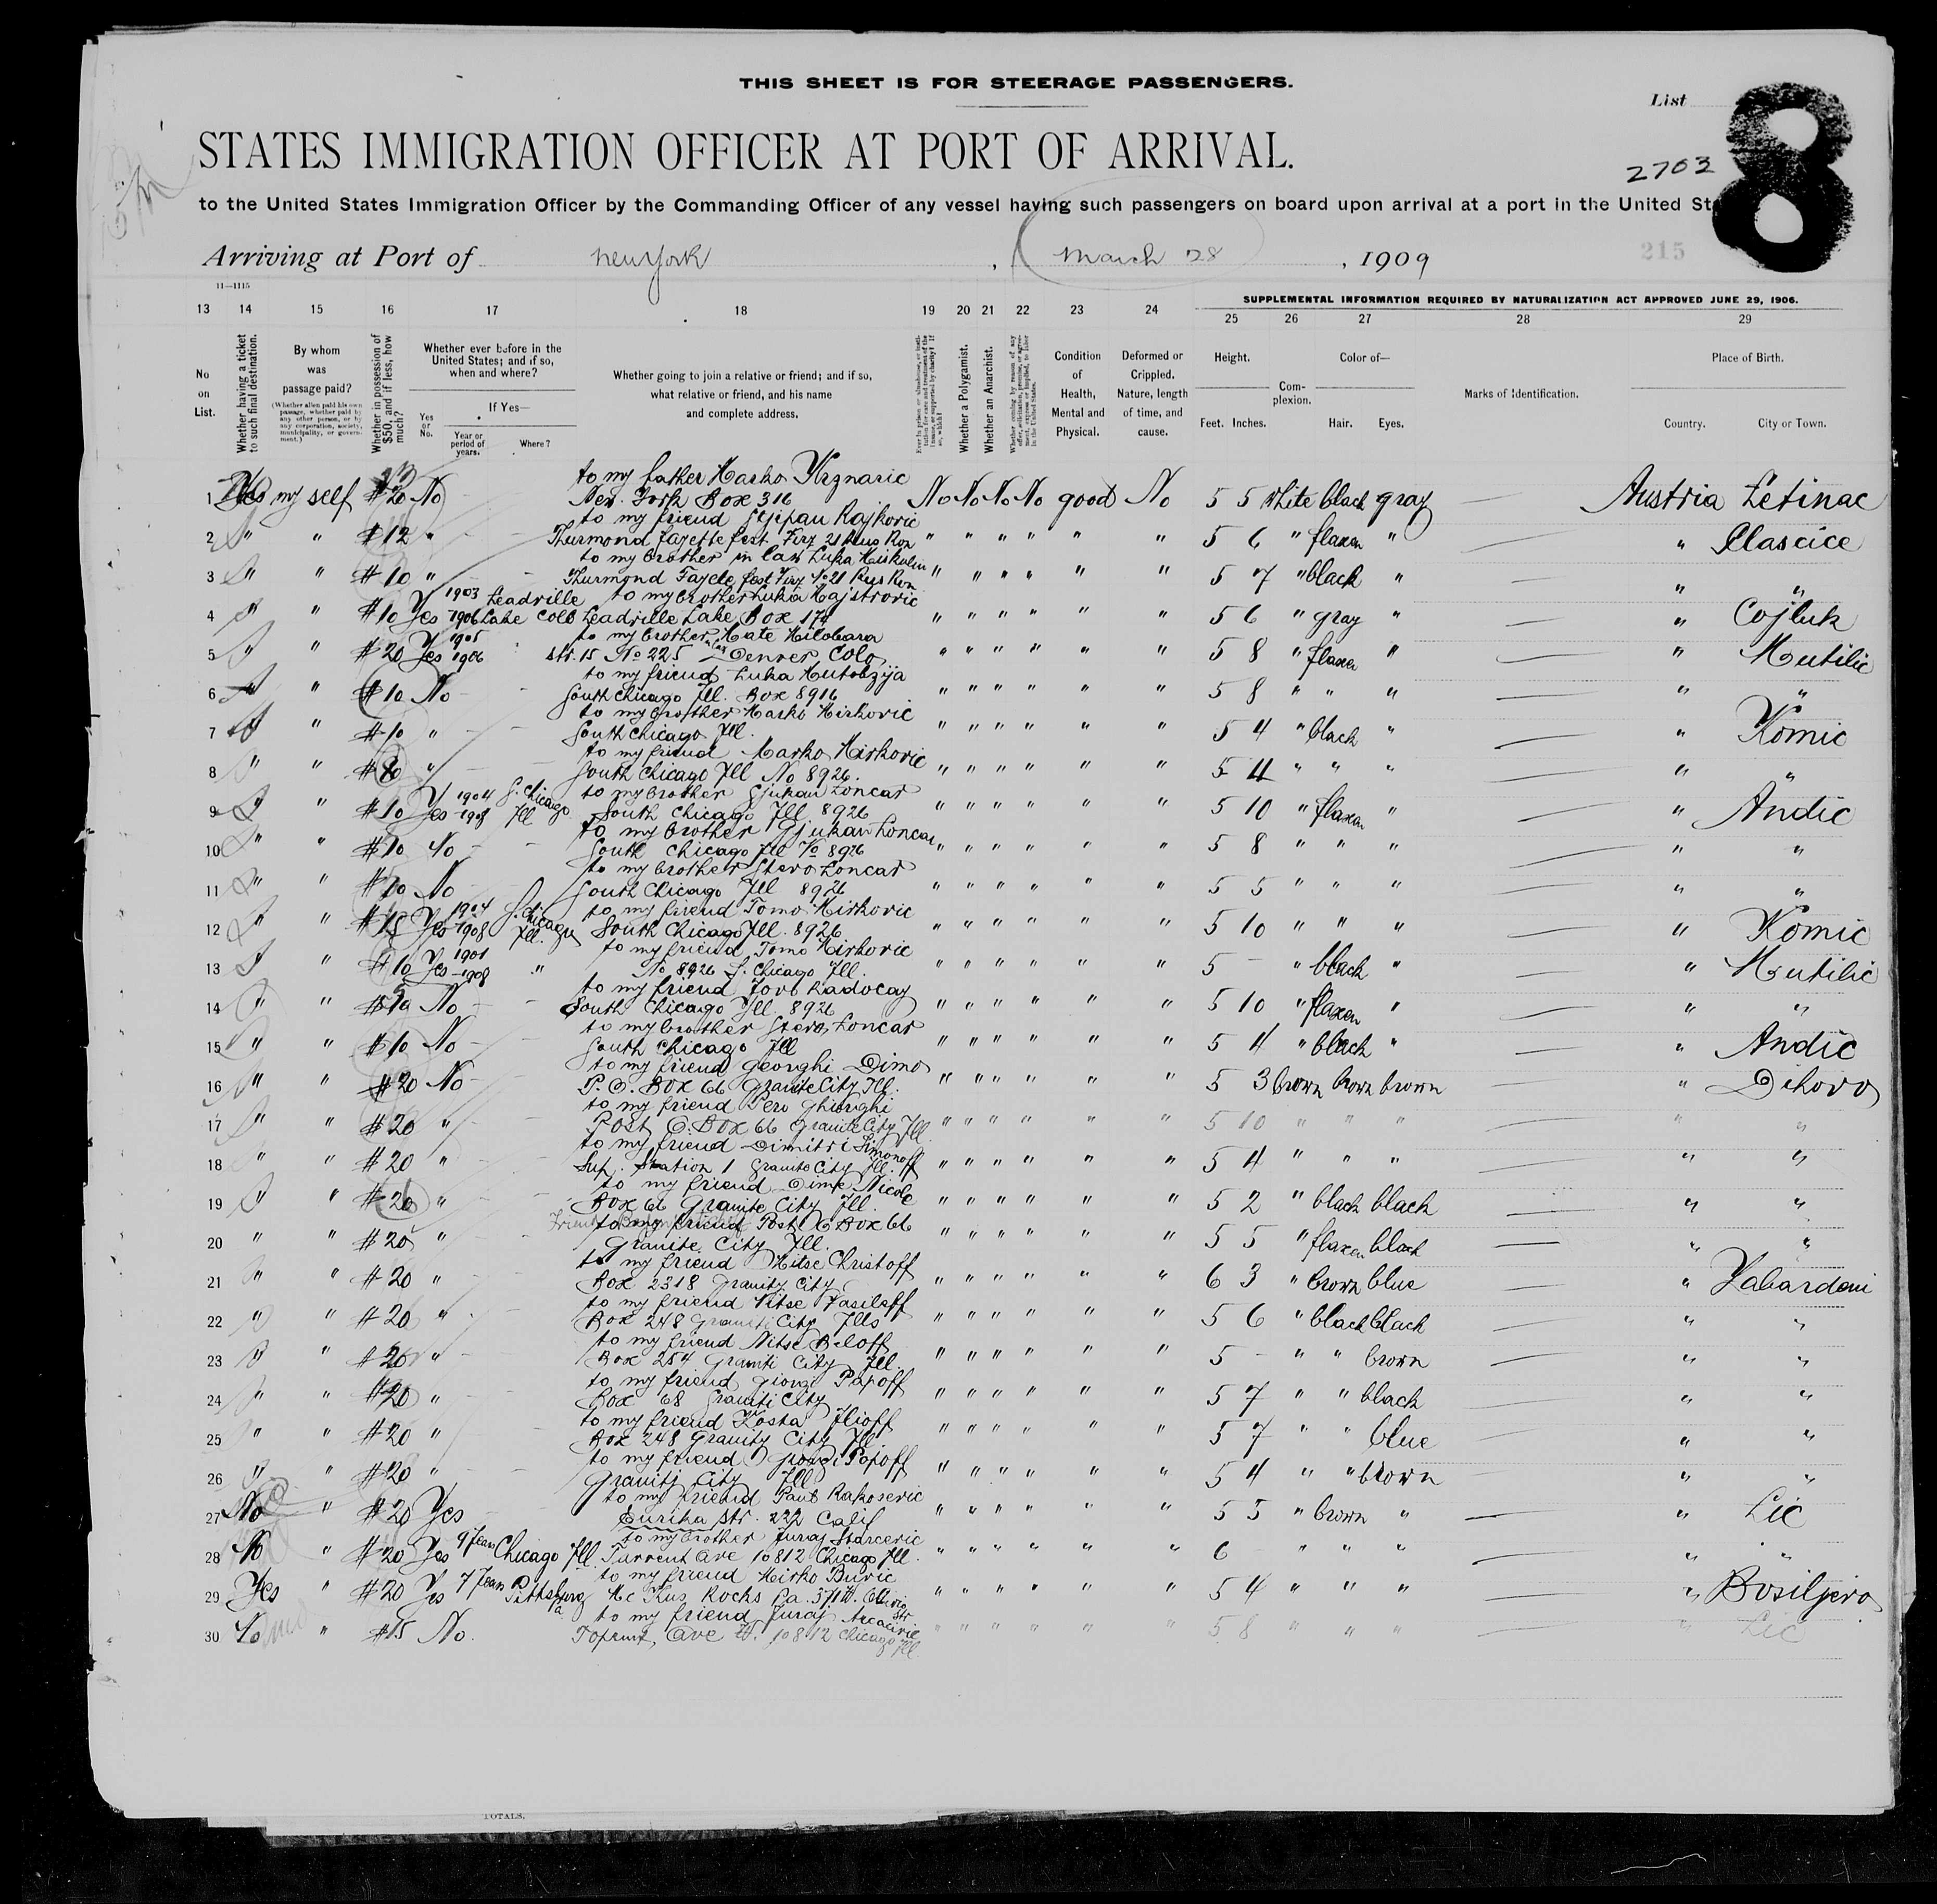 THIS SHEET IS FOR STEERAGE PASSENGERS.
List
8
STATES IMMIGRATION OFFICER AT PORT OF ARRIVAL.
2703
to the United States Immigration Officer by the Commanding Officer of any vessel having such passengers on board upon arrival at a port in the United St
Arriving at Port of New York, March 28, 1909
215
11—1115
SUPPLEMENTAL INFORMATION REQUIRED BY NATURALIZATION ACT APPROVED JUNE 29, 1906.
13 14 15 16 17 18 19 20 21 22 23 24 25 26 27 28 29
No on List.
Whether having a ticket to such final destination.
By whom was passage paid?
(Whether alien paid his own passage, whether paid by any other person, or by any corporation, society, municipality, or government.)
Whether in possession of $50, and if less, how much?
Whether ever before in the United States; and if so, when and where?
Yes or No.
If Yes—
Year or period of years.
Where?
Whether going to join a relative or friend; and if so, what relative or friend, and his name and complete address.
Whether a Polygamist.
Whether an Anarchist.
Condition of Health, Mental and Physical.
Deformed or Crippled. Nature, length of time, and cause.
Height.
Feet. Inches.
Complexion.
Color of—
Hair. Eyes.
Marks of Identification.
Place of Birth.
Country. City or Town.
to my father Marko
1 Yes my self $20 No New York Box 316 No No No No good No 5 5 white black gray — Austria Letinac
to my friend Stjepan Rajkovic
2 " " $12 " Thurmond " " " " " " 5 6 " flaxen " — " Plascice
to my brother in law Luka
3 " " $10 " Thurmond " " " " " " 5 7 " black " — " "
1903 Leadville to my brother Luka Majstrovic
4 " " $10 Yes 1906 Lake Colo Leadville Lake Box 174 " " " " " " 5 6 " gray " — " Cojluk
1905 to my brother in law Mate Milobara
5 " " $20 Yes 1906 str. 15 No 225 Denver Colo " " " " " " 5 8 " flaxen " — " Mutilic
to my friend Luka
6 " " $10 No South Chicago Ill. Box 8916 " " " " " " 5 8 " " " — " "
to my brother Marko Mirkovic
7 " " $10 " South Chicago Ill. " " " " " " 5 4 " black " — " Komic
to my friend Marko Mirkovic
8 " " " South Chicago Ill No 8926. " " " " " " 5 4 " " " — " "
1904 S. Chicago to my brother Gjukan Loncar
9 " " $10 Yes 1908 Ill South Chicago Ill. 8926 " " " " " " 5 10 " flaxen " — " Andic
to my brother Gjukan Loncar
10 " " $10 No South Chicago Ill No 8926 " " " " " " 5 8 " " " — " "
to my brother Stevo Loncar
11 " " $10 No South Chicago Ill 8926 " " " " " " 5 5 " " " — " "
1904 S. Chicago to my friend Tomo Mirkovic
12 " " $18 Yes 1908 Ill. South Chicago Ill. 8926 " " " " " " 5 10 " " " — " Komic
to my friend Tomo Mirkovic
13 " " $10 Yes 1908 " No 8926 S. Chicago Ill. " " " " " " 5 — " black " — " Mutilic
to my friend Radocay
14 " " No South Chicago Ill. 8926 " " " " " " 5 10 " flaxen " — " "
to my brother Stevo Loncar
15 " " $10 No South Chicago Ill " " " " " " 5 4 " black " — " Andic
to my friend Georghi Dimo
16 " " $20 No P. O. Box 66 Granite City Ill. " " " " " " 5 3 brown brown brown — " Dihovo
to my friend Pero Ghiorghi
17 " " $20 " Post O. Box 66 Granite City Ill. " " " " " " 5 10 " " " — " "
to my friend Dimitri Simonoff
18 " " $20 " Station 1 Granite City Ill. " " " " " " 5 4 " " " — " "
to my friend Dime Nicole
19 " " $20 " Box 66 Granite City Ill. " " " " " " 5 2 " black black — " "
to my friend Post O Box 66
20 " " $20 " Granite City Ill. " " " " " " 5 5 " flaxen black — " "
to my friend Mitse Christoff
21 " " $20 " Box 2318 Granity City " " " " " " 6 3 " brown blue — " Zabardeni
to my friend Vitse Vasileff
22 " " $20 " Box 248 Graniti City Ills " " " " " " 5 6 " black black — " "
to my friend Nitse Beloff
23 " " $20 " Box 254 Graniti City Ill. " " " " " " 5 — " " brown — " "
to my friend Giorgi Papoff
24 " " $20 " Box 68 Graniti City " " " " " " 5 7 " " black — " "
to my friend Kosta Ilioff
25 " " $20 " Box 248 Granity City Ill. " " " " " " 5 7 " " blue — " "
to my friend Giorgi Popoff
26 " " $20 " Graniti City Ill " " " " " " 5 4 " " brown — " "
to my friend Paul Rakoseric
27 No " $20 Yes Eurika str. 222 Calif " " " " " " 5 5 " brown " — " Lic
to my brother Juraj Starceric
28 No " $20 Yes 9 Years Chicago Ill. Turrent Ave 10812 Chicago Ill. " " " " " " 6 — " " " — " "
to my friend Mirko Buric
29 Yes " $20 Yes 7 Years Pittsburg Pa Mc Kus Rocks Pa. str. " " " " " " 5 4 " " " — " Bosiljevo
to my friend Juraj
30 No " $15 No. Ave 10812 Chicago Ill. " " " " " " 5 8 " " " — " Lic
TOTALS.